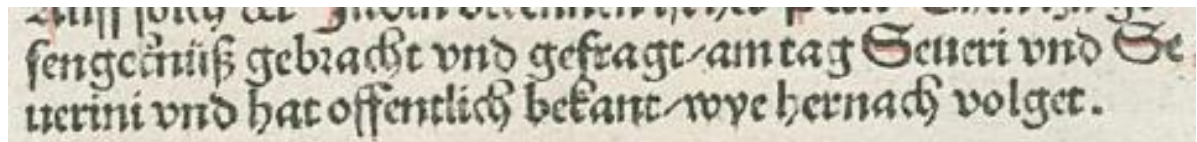 fengcknüß gebracht vnd gefragt/am tag Seueri vnd Se
uerini vnd hat offentlich bekant/wye hernach volget.